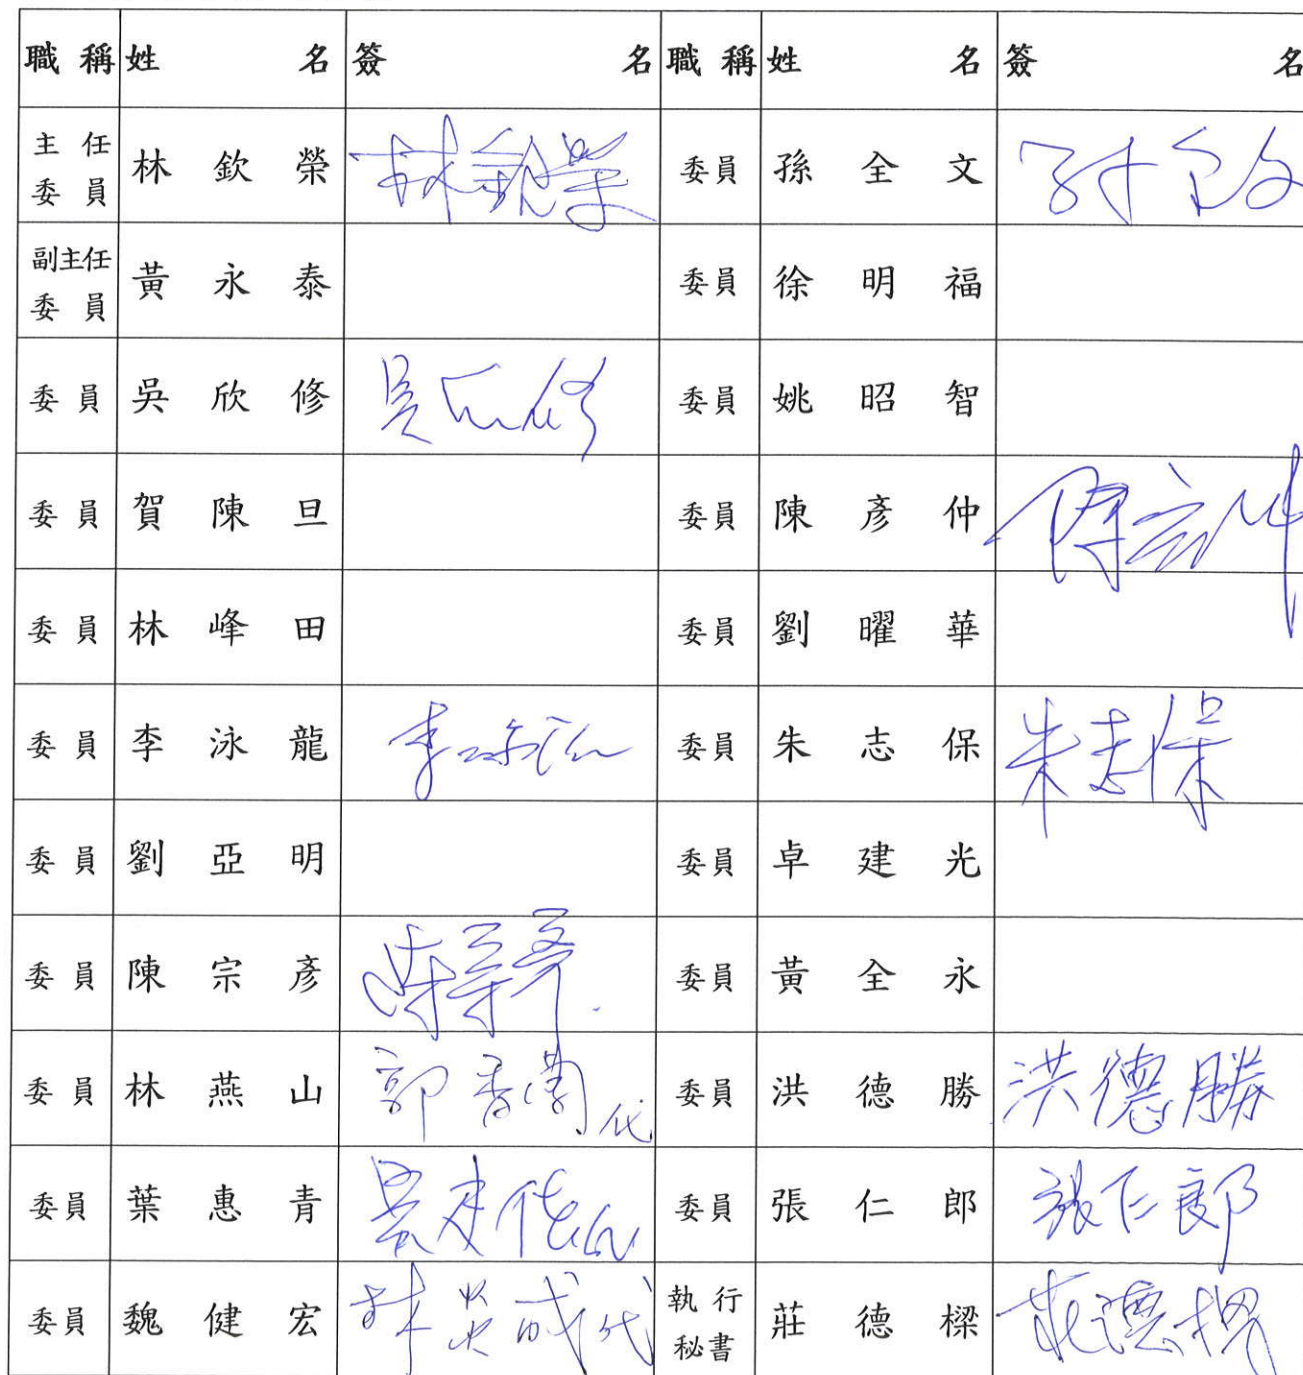 職稱 姓名 簽名 職稱 姓名 簽名
主任委員 林欽榮 林欽榮 委員 孫全文 孫全文
副主任委員 黃永泰 委員 徐明福
委員 吳欣修 吳欣修 委員 姚昭智
委員 賀陳旦 委員 陳彥仲 陳彥仲
委員 林峰田 委員 劉曜華
委員 李泳龍 李泳龍 委員 朱志保 朱志保
委員 劉亞明 委員 卓建光
委員 陳宗彥 陳宗彥 委員 黃全永
委員 林燕山 郭 代 委員 洪德勝 洪德勝
委員 葉惠青 委員 張仁郎 張仁郎
委員 魏健宏 林炎成代 執行秘書 莊德樑 莊德樑